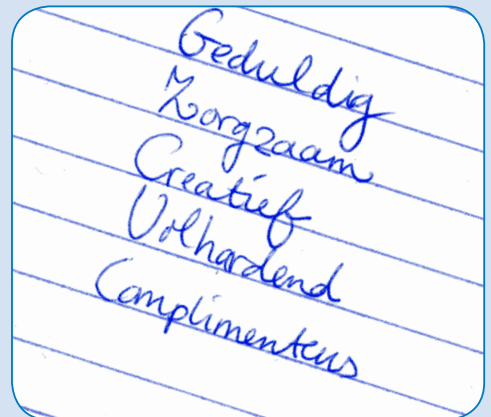 Geduldig
Zorgzaam
Creatief
Volhardend
Complimenteus